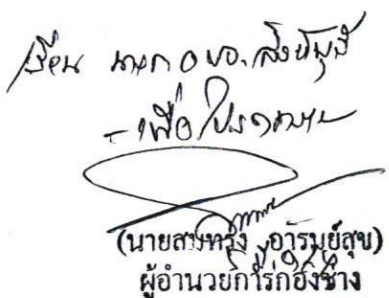 เรียน นายก อบต.
- เพื่อโปรดทราบ
(นายสมทรง อารมย์สุข)
ผู้อำนวยการกองช่าง